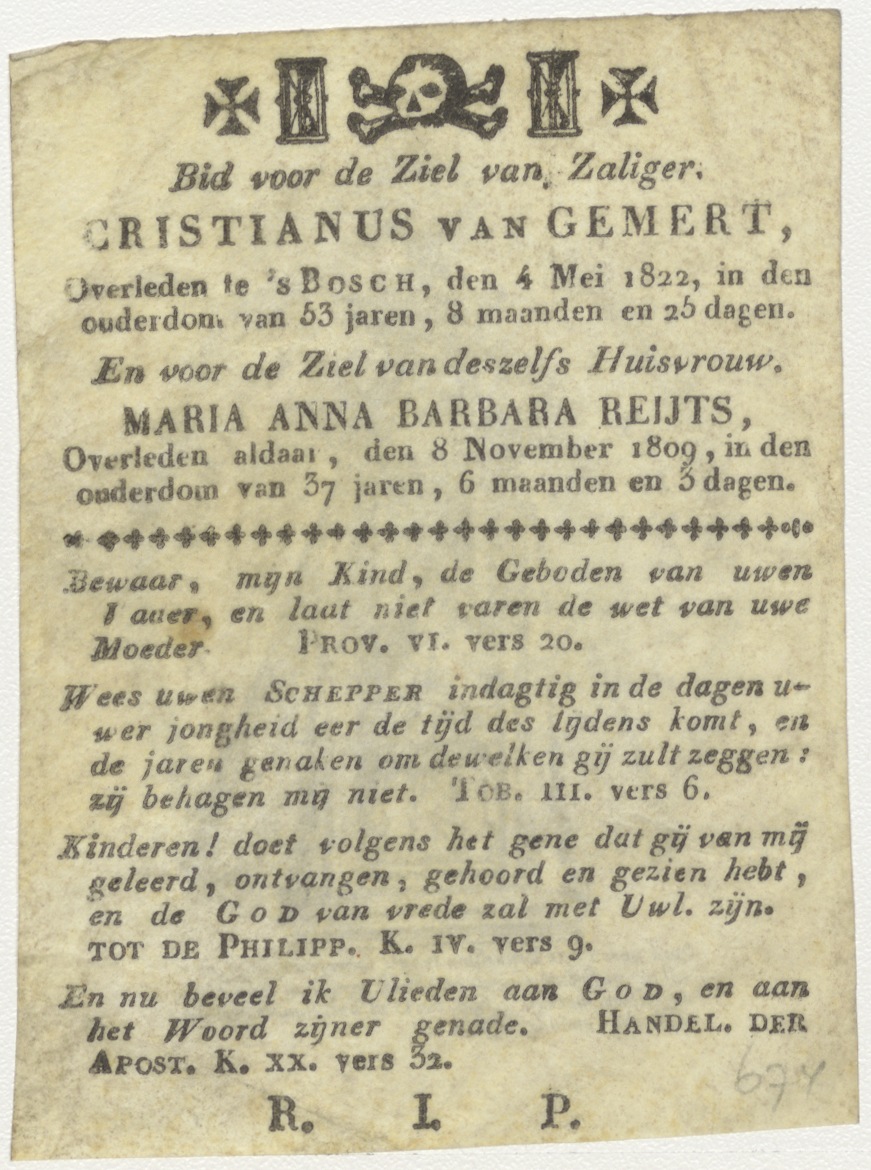 Bid voor de Ziel van Zaliger.
CRISTIANUS VAN GEMERT,
Overleden te 's BOSCH, den 4 Mei 1822, in den
ouderdom van 53 jaren, 8 maanden en 25 dagen.
En voor de Ziel van deszelfs Huisvrouw.
MARIA ANNA BARBARA REIJTS,
Overleden aldaar, den 8 November 1809, in den
ouderdom van 37 jaren, 6 maanden en 3 dagen.
Bewaar, mijn Kind, de Geboden van uwen
Vader, en laat niet varen de wet van uwe
Moeder. PROV. VI. vers 20.
Wees uwen SCHEPPER indagtig in de dagen u-
wer jongheid eer de tijd des lijdens komt, en
de jaren genaken om dewelken gij zult zeggen:
zij behagen mij niet. TOB. III. vers 6.
Kinderen! doet volgens het gene dat gij van mij
geleerd, ontvangen, gehoord en gezien hebt,
en de GOD van vrede zal met Uwl. zijn.
TOT DE PHILIPP. K. IV. vers 9.
En nu beveel ik Ulieden aan GOD, en aan
het Woord zijner genade. HANDEL. DER
APOST. K. XX. vers 32.
R. I. P.